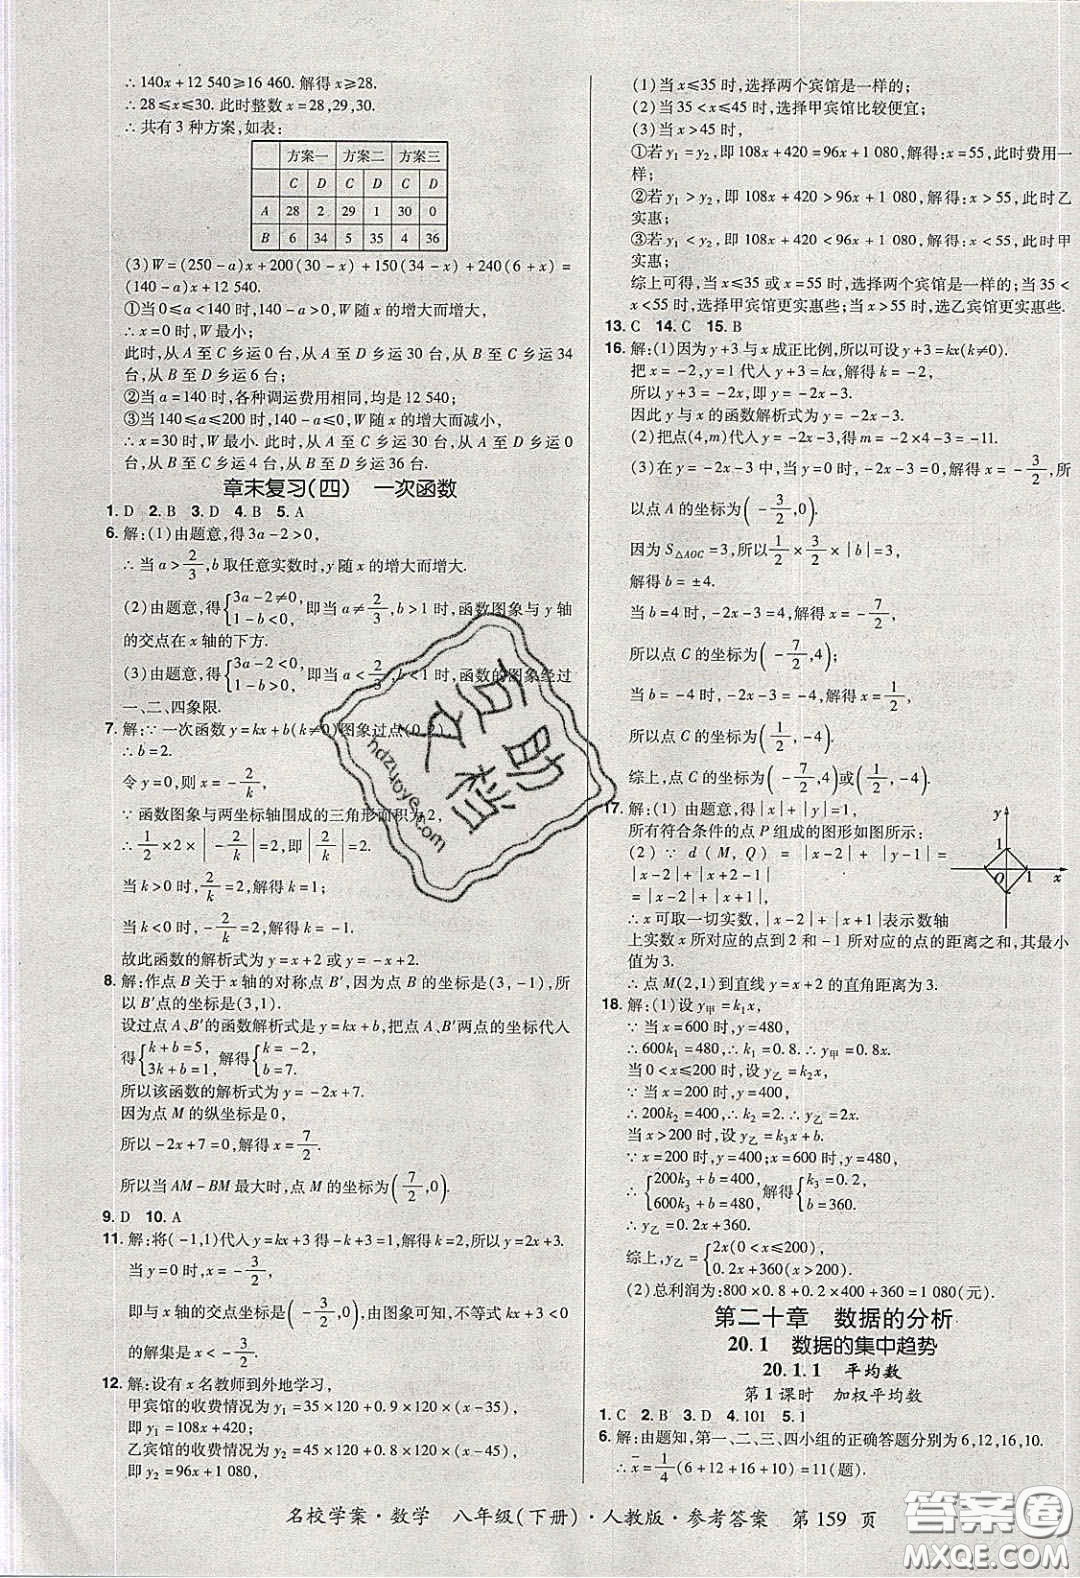 ∴ 140x+12 540≥16 460. 解得 x≥28.
∴ 28≤x≤30. 此时整数 x=28,29,30.
∴ 共有 3 种方案,如表:
方案一 方案二 方案三
C D C D C D
A 28 2 29 1 30 0
B 6 34 5 35 4 36
(3)W=(250-a)x+200(30-x)+150(34-x)+240(6+x)=
(140-a)x+12 540.
①当 0<a<140 时,140-a>0,W 随 x 的增大而增大,
∴ x=0 时,W 最小;
此时,从 A 至 C 乡运 0 台,从 A 至 D 乡运 30 台,从 B 至 C 乡运 34
台,从 B 至 D 乡运 6 台;
②当 a=140 时,各种调运费用相同,均是 12 540;
③当 140≤a≤200 时,140-a<0,W 随 x 的增大而减小,
∴ x=30 时,W 最小. 此时,从 A 至 C 乡运 30 台,从 A 至 D 乡运 0
台,从 B 至 C 乡运 4 台,从 B 至 D 乡运 36 台.
章末复习(四) 一次函数
1. D 2. B 3. D 4. B 5. A
6. 解:(1)由题意,得 3a-2>0.
∴ 当 a>2/3,b 取任意实数时,y 随 x 的增大而增大.
(2)由题意,得{3a-2≠0, 1-b<0, 即当 a≠2/3,b>1 时,函数图象与 y 轴
的交点在 x 轴的下方.
(3)由题意,得{3a-2<0, 1-b>0, 即当 a<2/3,b<1 时,函数的图象经过
一、二、四象限.
7. 解:∵ 一次函数 y=kx+b(k≠0)图象过点(0,2),
∴ b=2.
令 y=0,则 x=-2/k,
∵ 函数图象与两坐标轴围成的三角形面积为 2,
∴ 1/2×2×|-2/k|=2,即|2/k|=2.
当 k>0 时,2/k=2,解得 k=1;
当 k<0 时,-2/k=2,解得 k=-1.
故此函数的解析式为 y=x+2 或 y=-x+2.
8. 解:作点 B 关于 x 轴的对称点 B′,因为点 B 的坐标是(3,-1),所
以 B′点的坐标是(3,1).
设过点 A、B′的函数解析式是 y=kx+b,把点 A、B′两点的坐标代入
得{k+b=5, 3k+b=1, 解得{k=-2, b=7.
所以该函数的解析式为 y=-2x+7.
因为点 M 的纵坐标是 0,
所以-2x+7=0,解得 x=7/2.
所以当 AM-BM 最大时,点 M 的坐标为(7/2,0).
9. D 10. A
11. 解:将(-1,1)代入 y=kx+3 得-k+3=1,解得 k=2,所以 y=2x+3.
当 y=0 时,x=-3/2,
即与 x 轴的交点坐标是(-3/2,0),由图象可知,不等式 kx+3<0
的解集是 x<-3/2.
12. 解:设有 x 名教师到外地学习,
甲宾馆的收费情况为 y₁=35×120+0.9×120×(x-35),
即 y₁=108x+420;
乙宾馆的收费情况为 y₂=45×120+0.8×120×(x-45),
即 y₂=96x+1 080,
(1)当 x≤35 时,选择两个宾馆是一样的;
(2)当 35<x≤45 时,选择甲宾馆比较便宜;
(3)当 x>45 时,
①若 y₁=y₂,即 108x+420=96x+1 080,解得:x=55,此时费用一
样;
②若 y₁>y₂,即 108x+420>96x+1 080,解得:x>55,此时乙
实惠;
③若 y₁<y₂,即 108x+420<96x+1 080,解得:x<55,此时甲
实惠.
综上可得,当 x≤35 或 x=55 时,选择两个宾馆是一样的;当 35
<x<55 时,选择甲宾馆更实惠些;当 x>55 时,选乙宾馆更实惠些.
13. C 14. C 15. B
16. 解:(1)因为 y+3 与 x 成正比例,所以可设 y+3=kx(k≠0).
把 x=-2,y=1 代入 y+3=kx,解得 k=-2,
所以 y+3=-2x,即 y=-2x-3.
因此 y 与 x 的函数解析式为 y=-2x-3.
(2)把点(4,m)代入 y=-2x-3,得 m=-2×4-3=-11.
(3)在 y=-2x-3 中,当 y=0 时,-2x-3=0,解得 x=-3/2,所
以点 A 的坐标为(-3/2,0).
因为 S△AOC=3,所以1/2×3/2×|b|=3,
解得 b=±4.
当 b=4 时,-2x-3=4,解得 x=-7/2,
所以点 C 的坐标为(-7/2,4);
当 b=-4 时,-2x-3=-4,解得 x=1/2,
所以点 C 的坐标为(1/2,-4).
综上,点 C 的坐标为(-7/2,4)或(1/2,-4).
17. 解:(1)由题意,得|x|+|y|=1,
所有符合条件的点 P 组成的图形如图所示:
(2)∵ d(M,Q)=|x-2|+|y-1|=
|x-2|+|x+2-1|
=|x-2|+|x+1|,
∴ x 可取一切实数,|x-2|+|x+1|表示数轴
上实数 x 所对应的点到 2 和-1 所对应的点的距离之和,其最小
值为 3.
∴ 点 M(2,1)到直线 y=x+2 的直角距离为 3.
y
1
O 1 x
18. 解:(1)设 y甲=k₁x,
∵ 当 x=600 时,y=480,
∴ 600k₁=480,∴ k₁=0.8. ∴ y甲=0.8x.
当 0<x≤200 时,设 y乙=k₂x,
∵ 当 x=200 时,y=400,
∴ 200k₂=400,∴ k₂=2. ∴ y乙=2x.
当 x>200 时,设 y乙=k₃x+b.
∵ x=200 时,y=400;x=600 时,y=480,
∴ {200k₃+b=400, 600k₃+b=480, 解得{k₃=0.2, b=360.
∴ y乙=0.2x+360.
综上,y乙={2x(0<x≤200), 0.2x+360(x>200).
(2)总利润为:800×0.8+0.2×400+360=1 080(元).
第二十章 数据的分析
20.1 数据的集中趋势
20.1.1 平均数
第 1 课时 加权平均数
1. C 2. B 3. D 4. 101 5. 1
6. 解:由题知,第一、二、三、四小组的正确答题分别为 6,12,16,10.
∴ x̄=1/4(6+12+16+10)=11(题).
名校学案·数学 八年级(下册)·人教版·参考答案 第 159 页
答案圈
MXQE.COM
hdzuoye.com